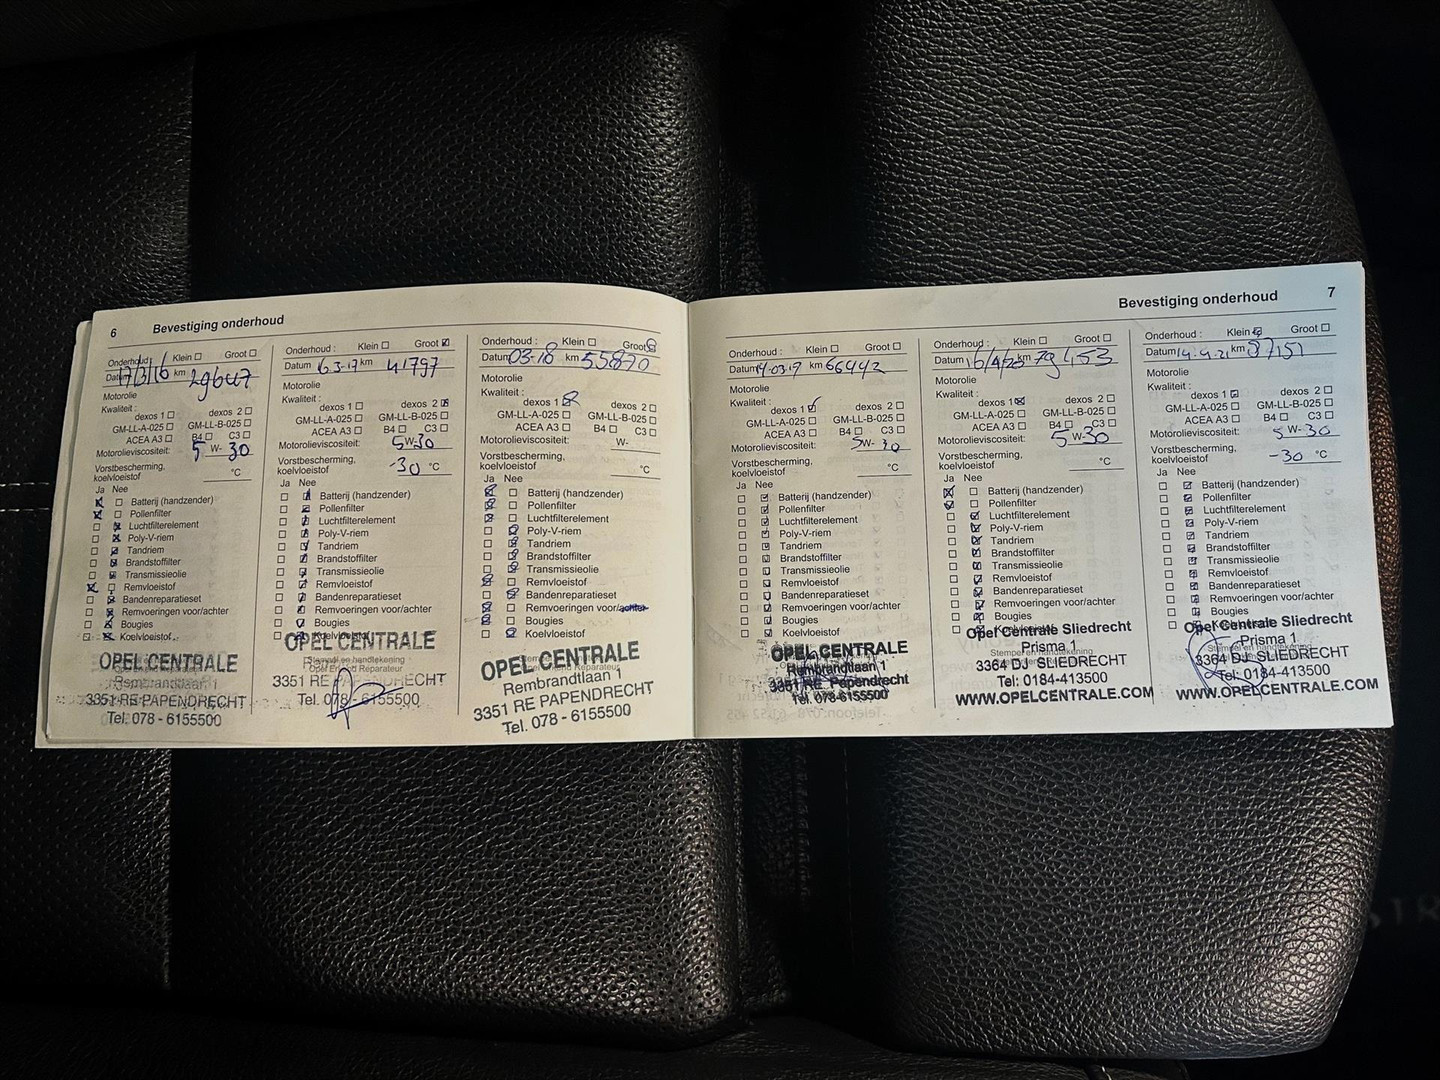 6 Bevestiging onderhoud
Onderhoud: Klein Groot
Datum 17/3/16 km 29647
Motorolie
Kwaliteit:
dexos 1 dexos 2
GM-LL-A-025 GM-LL-B-025
ACEA A3 B4 C3
Motorolieviscositeit: 5 W- 30
Vorstbescherming,
koelvloeistof °C
Ja Nee
Batterij (handzender)
Pollenfilter
Luchtfilterelement
Poly-V-riem
Tandriem
Brandstoffilter
Transmissieolie
Remvloeistof
Bandenreparatieset
Remvoeringen voor/achter
Bougies
Koelvloeistof
OPEL CENTRALE
Rembrandtlaan 1
3351 RE PAPENDRECHT
Tel. 078 - 6155500
Onderhoud: Klein Groot
Datum 16-3-17 km 41797
Motorolie
Kwaliteit:
dexos 1 dexos 2
GM-LL-A-025 GM-LL-B-025
ACEA A3 B4 C3
Motorolieviscositeit: 5 W- 30
Vorstbescherming,
koelvloeistof -30 °C
Ja Nee
Batterij (handzender)
Pollenfilter
Luchtfilterelement
Poly-V-riem
Tandriem
Brandstoffilter
Transmissieolie
Remvloeistof
Bandenreparatieset
Remvoeringen voor/achter
Bougies
Koelvloeistof
OPEL CENTRALE
Stempel en handtekening
Opel Erkend Reparateur
3351 RE PAPENDRECHT
Tel. 078 - 6155500
Onderhoud : Klein Groot
Datum 03-18 km 55870
Motorolie
Kwaliteit :
dexos 1 dexos 2
GM-LL-A-025 GM-LL-B-025
ACEA A3 B4 C3
Motorolieviscositeit: W-
Vorstbescherming,
koelvloeistof °C
Ja Nee
Batterij (handzender)
Pollenfilter
Luchtfilterelement
Poly-V-riem
Tandriem
Brandstoffilter
Transmissieolie
Remvloeistof
Bandenreparatieset
Remvoeringen voor/achter
Bougies
Koelvloeistof
OPEL CENTRALE
Rembrandtlaan 1
3351 RE PAPENDRECHT
Tel. 078 - 6155500
Bevestiging onderhoud 7
Onderhoud : Klein Groot
Datum 14-03-19 km 66442
Motorolie
Kwaliteit :
dexos 1 dexos 2
GM-LL-A-025 GM-LL-B-025
ACEA A3 B4 C3
Motorolieviscositeit: 5W- 30
Vorstbescherming,
koelvloeistof °C
Ja Nee
Batterij (handzender)
Pollenfilter
Luchtfilterelement
Poly-V-riem
Tandriem
Brandstoffilter
Transmissieolie
Remvloeistof
Bandenreparatieset
Remvoeringen voor/achter
Bougies
Koelvloeistof
OPEL CENTRALE
Rembrandtlaan 1
3351 RE Papendrecht
Tel. 078-6155500
Onderhoud : Klein Groot
Datum km 79453
Motorolie
Kwaliteit :
dexos 1 dexos 2
GM-LL-A-025 GM-LL-B-025
ACEA A3 B4 C3
Motorolieviscositeit: 5 W-30
Vorstbescherming,
koelvloeistof °C
Ja Nee
Batterij (handzender)
Pollenfilter
Luchtfilterelement
Poly-V-riem
Tandriem
Brandstoffilter
Transmissieolie
Remvloeistof
Bandenreparatieset
Remvoeringen voor/achter
Bougies
Koelvloeistof
Opel Centrale Sliedrecht
Prisma 1
3364 DJ SLIEDRECHT
Tel: 0184-413500
WWW.OPELCENTRALE.COM
Onderhoud : Klein Groot
Datum 14-4-21 km 87151
Motorolie
Kwaliteit :
dexos 1 dexos 2
GM-LL-A-025 GM-LL-B-025
ACEA A3 B4 C3
Motorolieviscositeit: 5 W- 30
Vorstbescherming,
koelvloeistof -30 °C
Ja Nee
Batterij (handzender)
Pollenfilter
Luchtfilterelement
Poly-V-riem
Tandriem
Brandstoffilter
Transmissieolie
Remvloeistof
Bandenreparatieset
Remvoeringen voor/achter
Bougies
Koelvloeistof
Opel Centrale Sliedrecht
Prisma 1
3364 DJ SLIEDRECHT
Tel: 0184-413500
WWW.OPELCENTRALE.COM